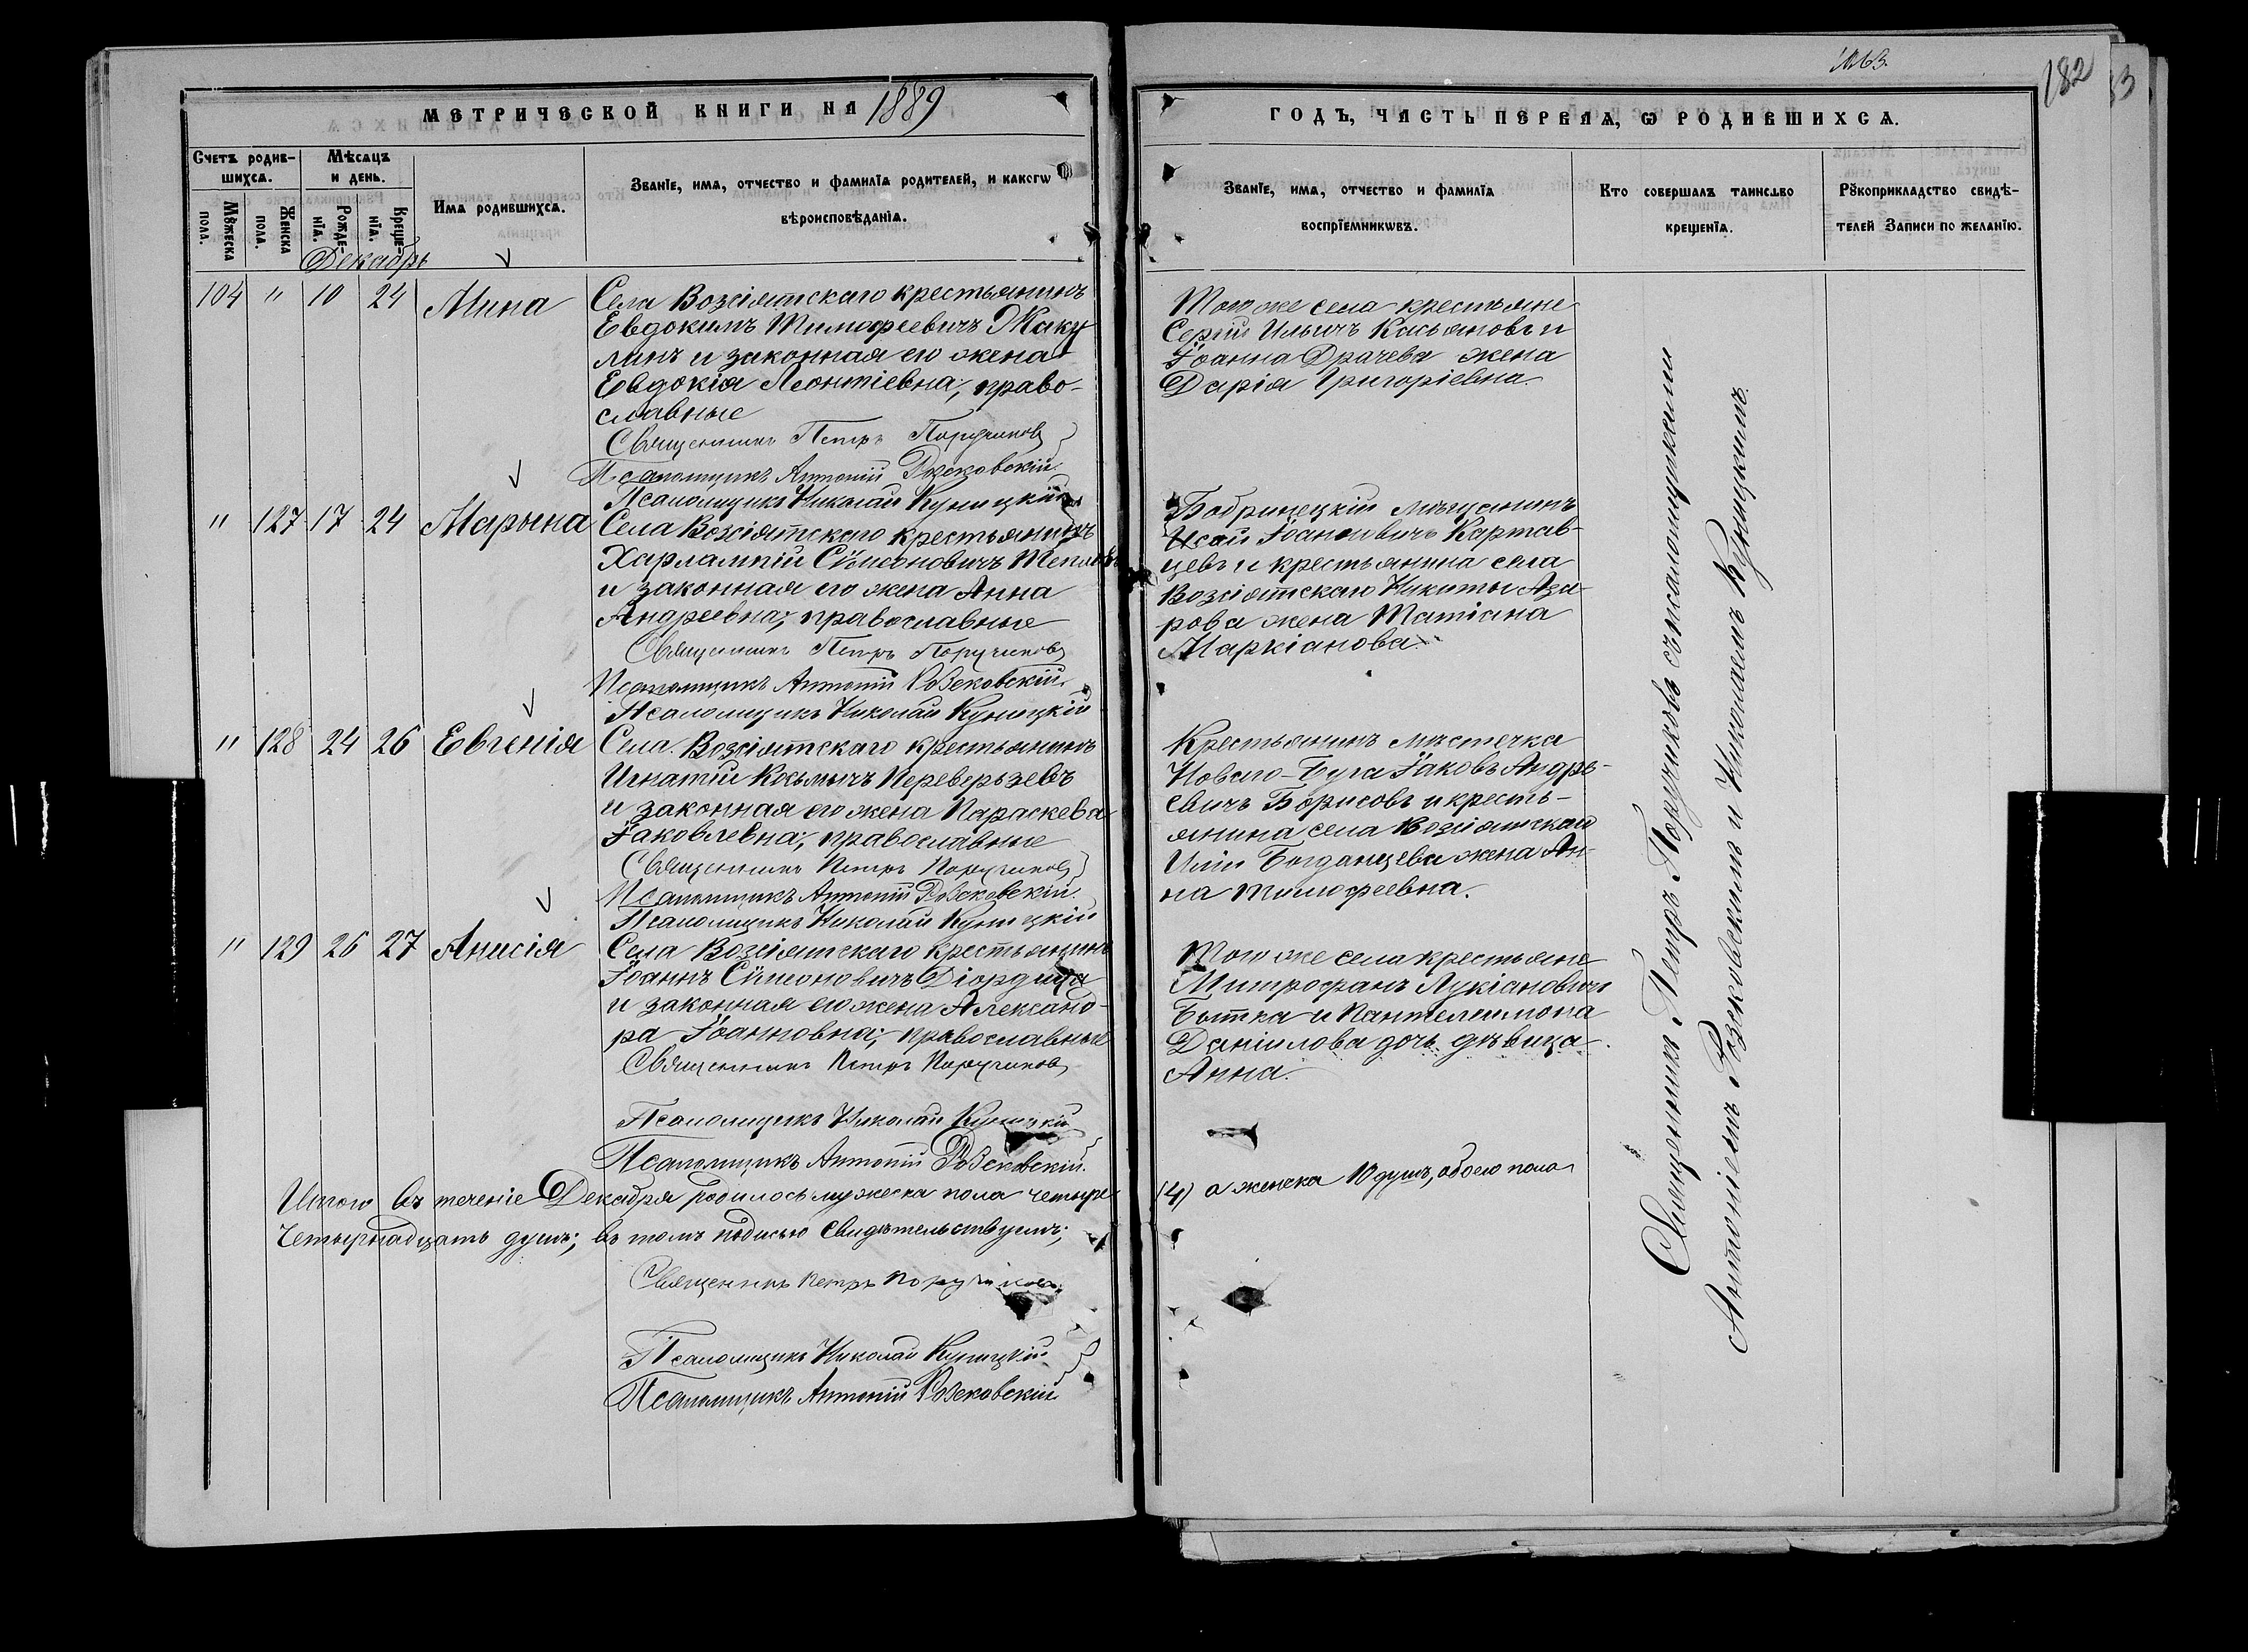 1063.
182
МЕТРИЧЕСКОЙ КНИГИ НА 1889
ГОДЪ, ЧАСТЬ ПЕРВАЯ, Ѡ РОДИВШИХСѦ.
Счетъ родив-
шихсѧ.
Мѣсѧцъ
и день.
Мꙋжеска
пола.
Женска
пола.
Рожде-
нїѧ.
Креще-
нїѧ.
Имѧ родившихсѧ.
Званїе, имѧ, отчество и фамилїѧ родителей, и какогѡ
вѣроисповѣданїѧ.
Званїе, имѧ, отчество и фамилїѧ
воспрїемникѡвъ.
Кто совершалъ таинство
крещенїѧ.
Рꙋкоприкладство свидѣ-
телей Записи по желанїю.
Декабрь
104 " 10 24 Мина
Села Возсіятскаго крестьянинъ
Евдокимъ Тимофеевичъ Жаку
линъ и законная его жена
Евдокія Леонтіевна, право-
славные
Священникъ Петръ Поручиковъ
Псаломщикъ Антоній Розсковскій
Псаломщикъ Николай Куницкій
Того же села крестьяне
Сергій Ильичъ Касьяновъ и
Іоанна Драчева жена
Дарія Григоріевна.
" 127 17 24 Марына
Села Возсіятскаго крестьянинъ
Харлампій Сѵмеоновичъ Тепловъ
и законная его жена Анна
Андреевна; православные
Священникъ Петръ Поручиковъ
Псаломщикъ Антоній Розсковскій
Псаломщикъ Николай Куницкій
Бобринецкій мѣщанинъ
Исай Іоановичъ Картав-
цевъ и крестьянина села
Возсіятскаго Никиты Аза-
рова жена Татіана
Маркіанова.
" 128 24 26 Евгенія
Села Возсіятскаго крестьянинъ
Игнатій Козьмичъ Переверзевъ
и законная его жена Параскева
Іаковлевна; православные
Священникъ Петръ Поручиковъ
Псаломщикъ Антоній Розсковскій
Псаломщикъ Николай Куницкій
Крестьянинъ мѣстечка
Новаго-Буга Іаковъ Андре-
евичъ Борисовъ и кресть-
янина села Возсіятскаго
Иліи Богданцева жена Ан-
на Тимофеевна.
" 129 26 27 Анисія
Села Возсіятскаго крестьянинъ
Іоаннъ Сѵмеоновичъ Діордица
и законная его жена Александ-
ра Іоанновна; православные
Священникъ Петръ Поручиковъ
Псаломщикъ Николай Куницкій
Псаломщикъ Антоній Розсковскій.
Того же села крестьяне
Митрофанъ Лукіановичъ
Бытка и Пантелеимона
Даніилова дочь дѣвица
Анна.
Священникъ Петръ Поручиковъ съ псаломщиками
Антоніемъ Розсковскимъ и Николаемъ Куницкимъ.
Итого въ теченіе Декабря родилось мужеска пола четыре (4) а женска 10 душъ, обоего пола
Четырнадцать душъ; въ томъ подписью свидѣтельствуемъ;
Священникъ Петръ Поручиковъ
Псаломщикъ Николай Куницкій
Псаломщикъ Антоній Розсковскій